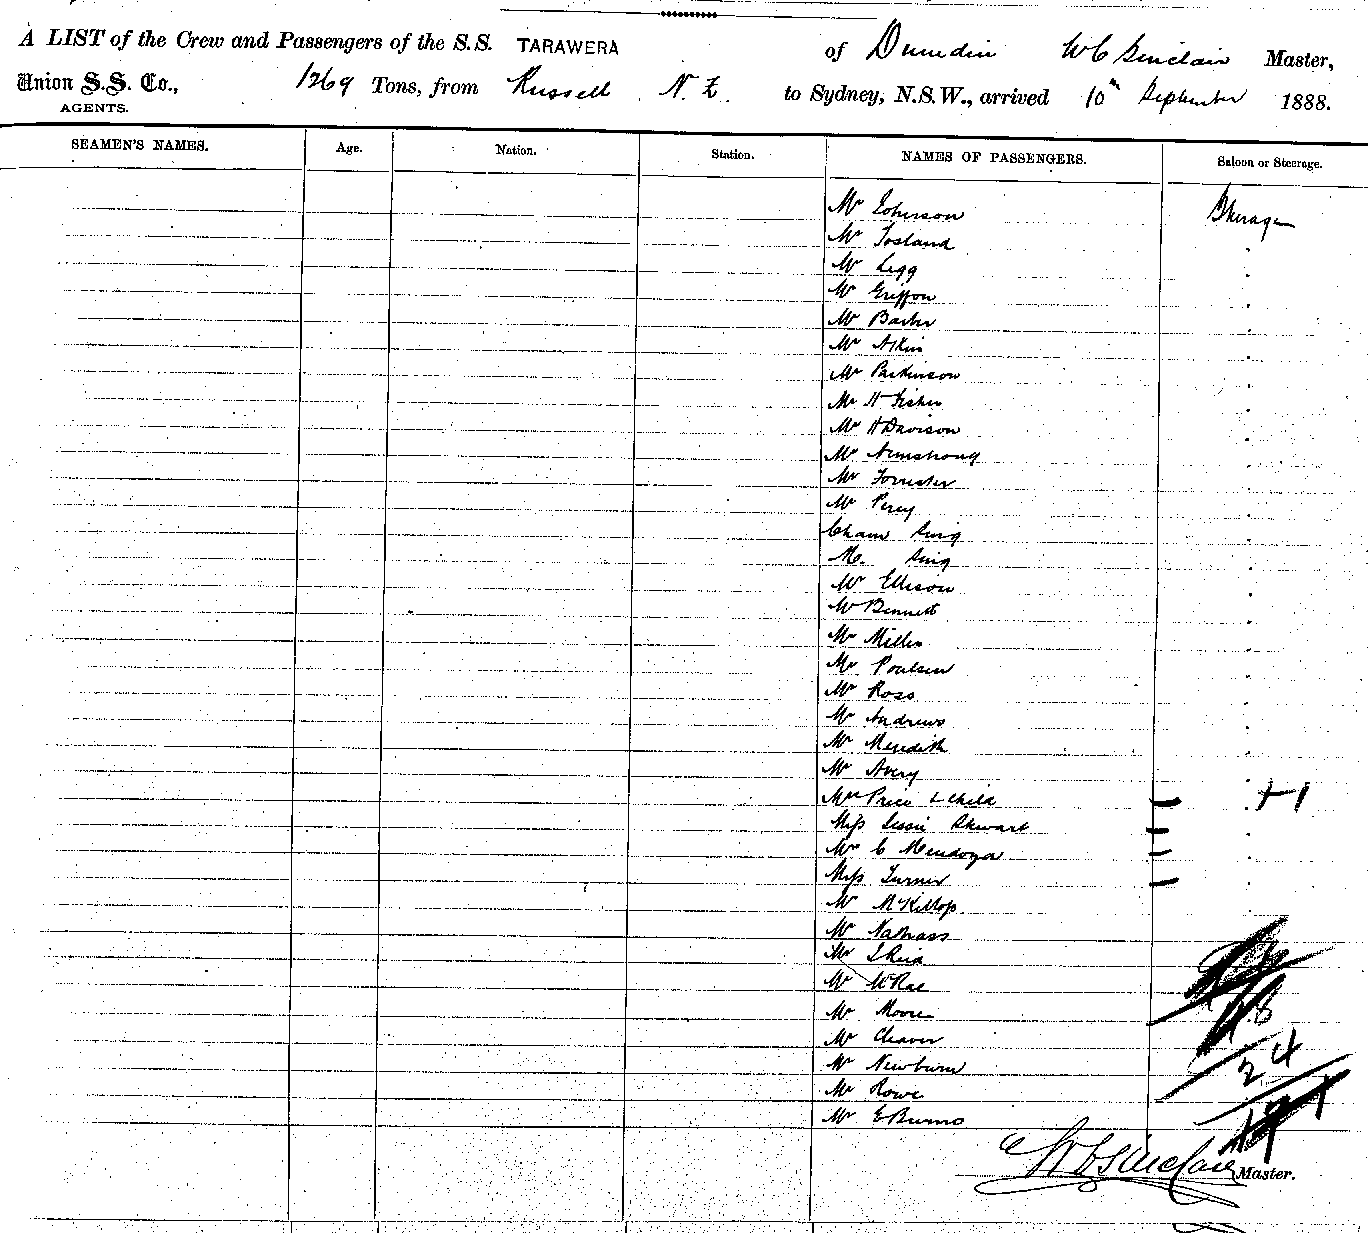 A LIST of the Crew and Passengers of the S.S. TARAWERA of Dunedin W C Sinclair Master,
Union S.S. Co., 1269 Tons, from Russell N.Z. to Sydney, N.S.W., arrived 10th September 1888.
AGENTS.
SEAMEN'S NAMES. Age. Nation. Station. NAMES OF PASSENGERS. Saloon or Steerage.
Mr Steerage
Mr Tosland
Mr Legg
Mr Griffon
Mr
Mr Atkin
Mr Parkinson
Mr H Fisher
Mr H Davison
Mr Armstrong
Mr Forrester
Mr Percy
Cham Sing
M. Sing
Mr Ellison
Mr Bennett
Mr Miller
Mr Poulsen
Mr Ross
Mr Andrews
Mr Meredith
Mr Avery
Mrs Price & Child +1
Miss Jessie Stewart
C Mendoza
Miss Turner
Mr McKillop
Mr Nattrass
Mr J Reid
Mr McRae
Mr Moore
Mr Cleaver
Mr Newburn
24
Mr Rowe
Mr E Burns
W C Sinclair Master.